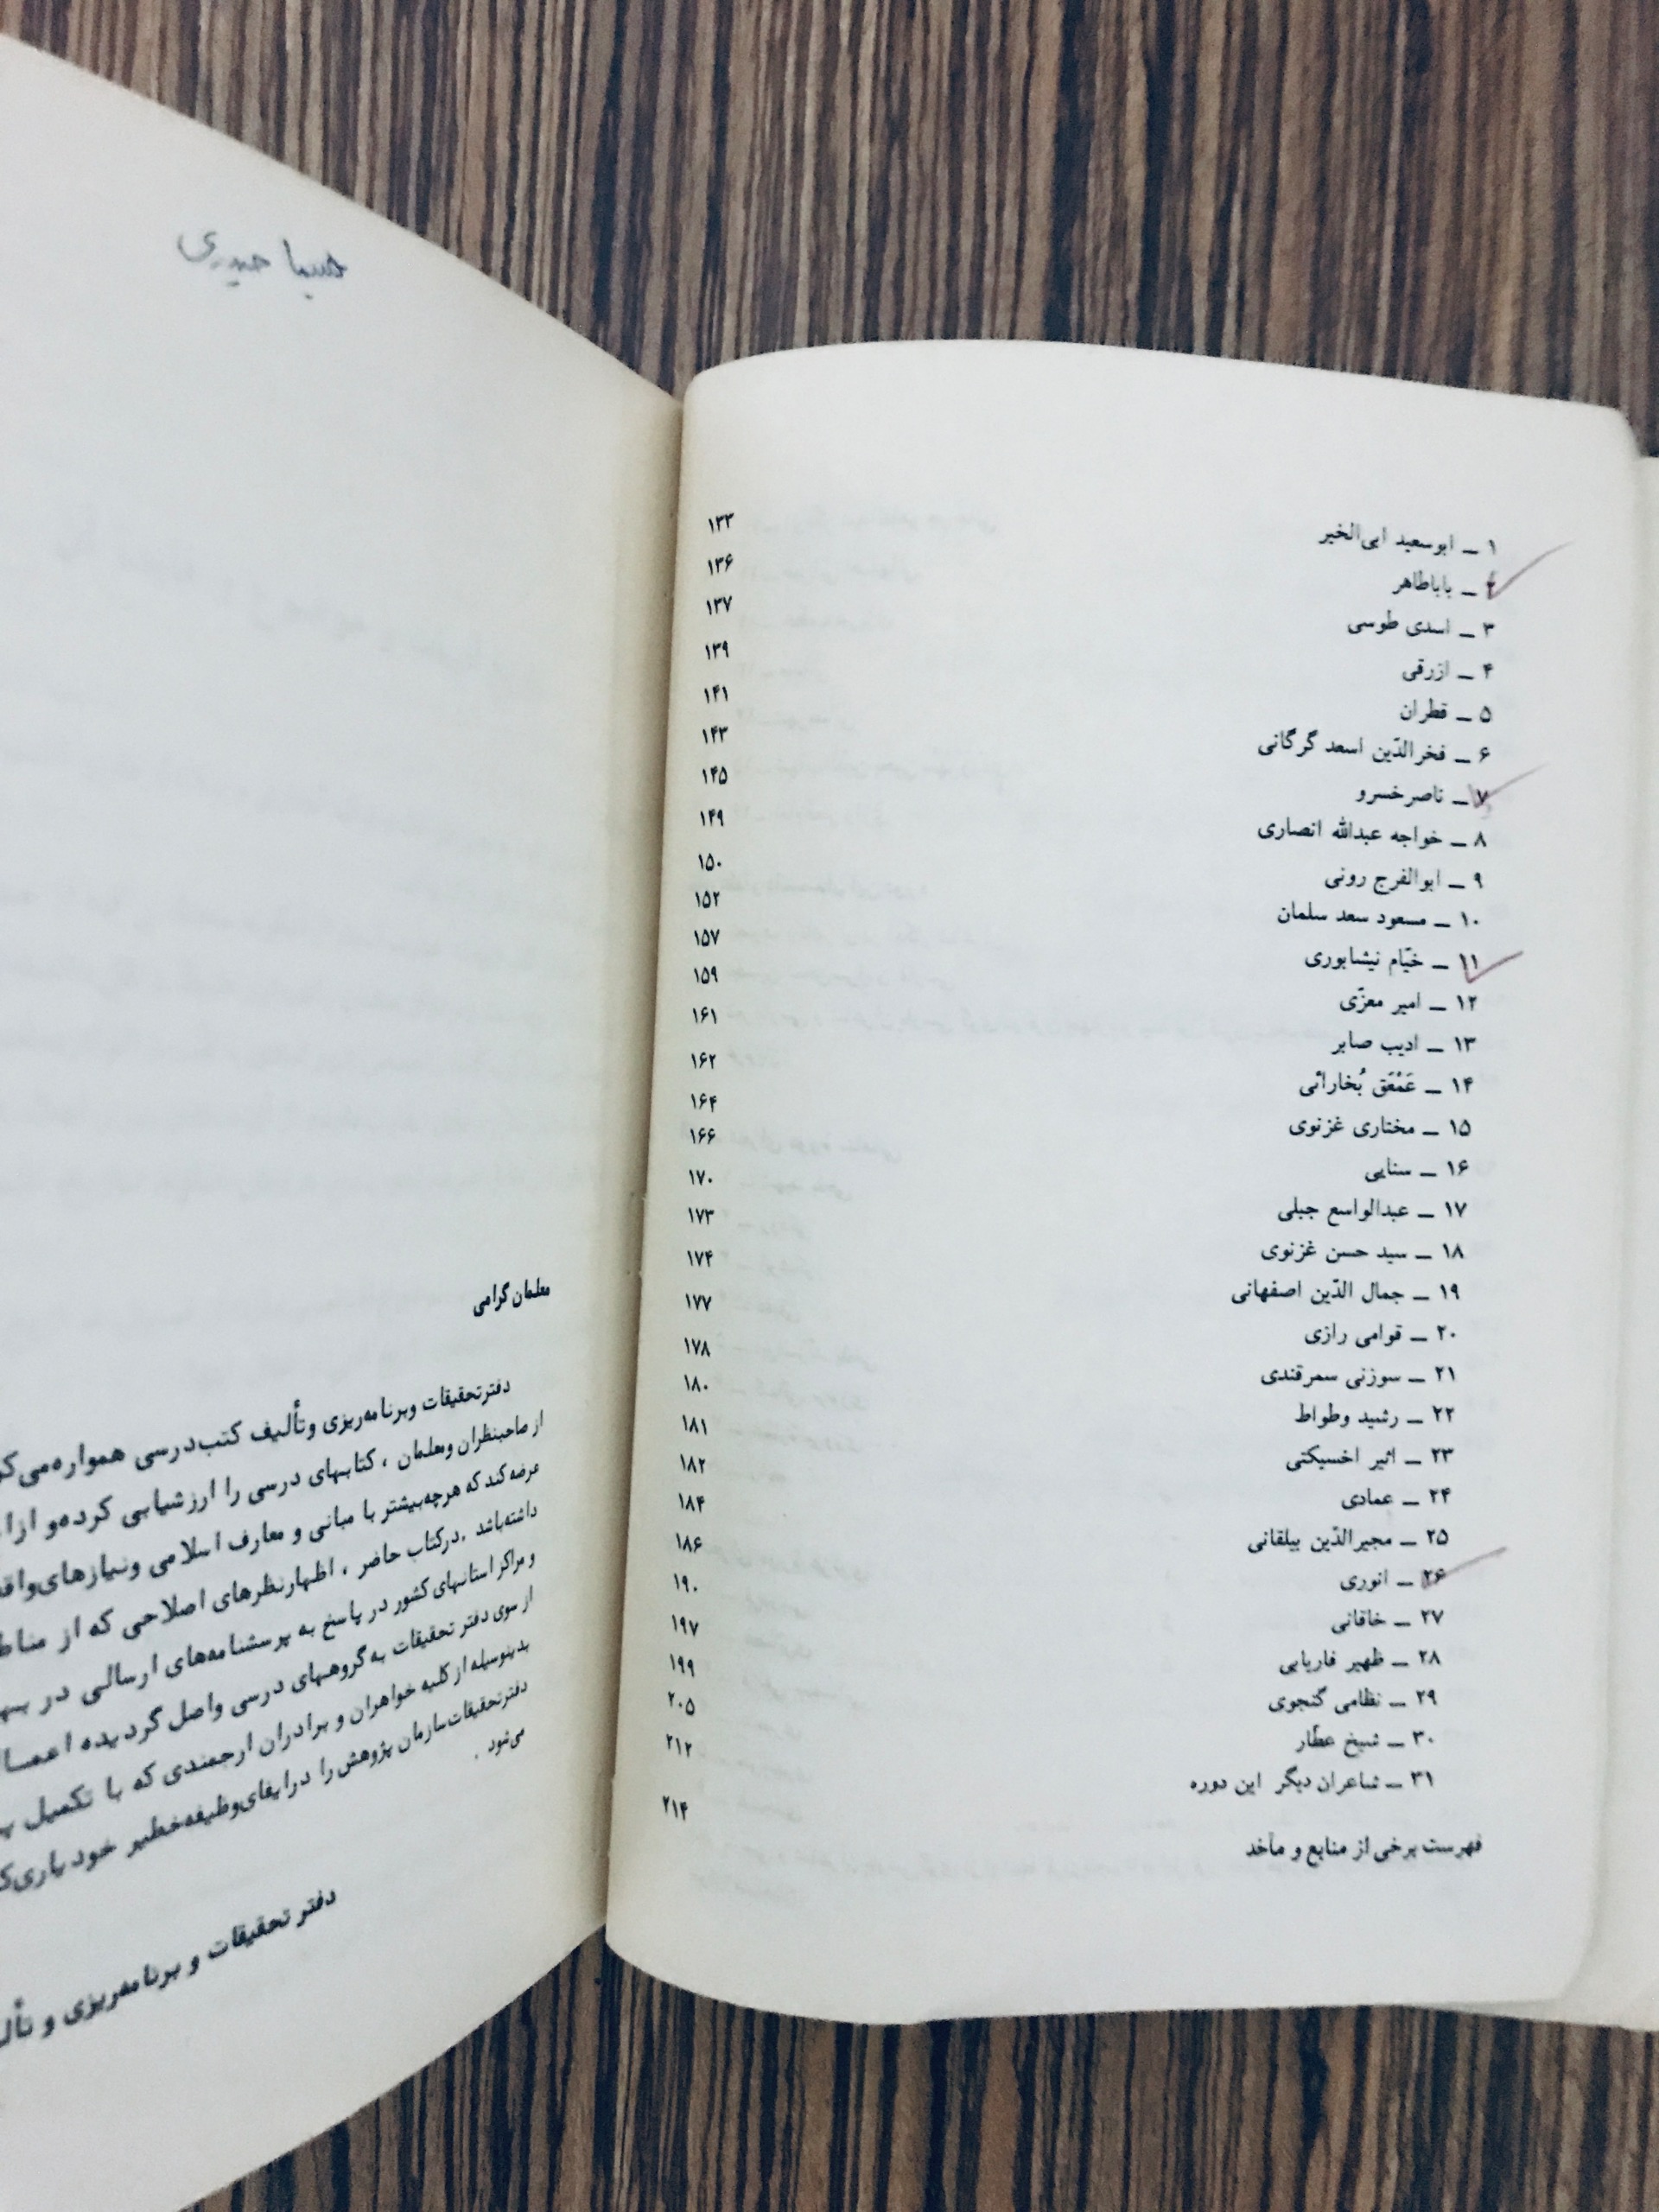 ۱ ــ ابوسعید ابی‌الخیر ۱۳۳
۲ ــ باباطاهر ۱۳۶
۳ ــ اسدی طوسی ۱۳۷
۴ ــ ازرقی ۱۳۹
۵ ــ قطران ۱۴۱
۶ ــ فخرالدّین اسعد گرگانی ۱۴۳
۷ ــ ناصرخسرو ۱۴۵
۸ ــ خواجه عبدالله انصاری ۱۴۹
۹ ــ ابوالفرج رونی ۱۵۰
۱۰ ــ مسعود سعد سلمان ۱۵۲
۱۱ ــ خیّام نیشابوری ۱۵۷
۱۲ ــ امیر معزّی ۱۵۹
۱۳ ــ ادیب صابر ۱۶۱
۱۴ ــ عَمْعَق بُخارائی ۱۶۲
۱۵ ــ مختاری غزنوی ۱۶۴
۱۶ ــ سنایی ۱۶۶
۱۷ ــ عبدالواسع جبلی ۱۷۰
۱۸ ــ سید حسن غزنوی ۱۷۳
۱۹ ــ جمال الدّین اصفهانی ۱۷۴
۲۰ ــ قوامی رازی ۱۷۷
۲۱ ــ سوزنی سمرقندی ۱۷۸
۲۲ ــ رشید وطواط ۱۸۰
۲۳ ــ اثیر اخسیکتی ۱۸۱
۲۴ ــ عمادی ۱۸۲
۲۵ ــ مجیرالدّین بیلقانی ۱۸۴
۲۶ ــ انوری ۱۸۶
۲۷ ــ خاقانی ۱۹۰
۲۸ ــ ظهیر فاریابی ۱۹۷
۲۹ ــ نظامی گنجوی ۱۹۹
۳۰ ــ شیخ عطّار ۲۰۵
۳۱ ــ شاعران دیگر این دوره ۲۱۲
فهرست برخی از منابع و مآخذ ۲۱۴
حیدری
معلمان گرامی
دفتر تحقیقات و برنامه‌ریزی و تألیف کتب درسی همواره
از صاحبنظران و معلمان ، کتابهای درسی را ارزشیابی کرده و
عرضه کند که هرچه بیشتر با مبانی و معارف اسلامی و نیازهای
داشته باشد . در کتاب حاضر ، اظهارنظرهای اصلاحی که از
و مراکز استانهای کشور در پاسخ به پرسشنامه‌های ارسالی در
از سوی دفتر تحقیقات به گروههای درسی واصل گردیده
بدینوسیله از کلیه خواهران و برادران ارجمندی که با تکمیل
دفتر تحقیقات سازمان پژوهش را در ایفای وظیفه خطیر خود
می‌شود .
دفتر تحقیقات و برنامه‌ریزی و